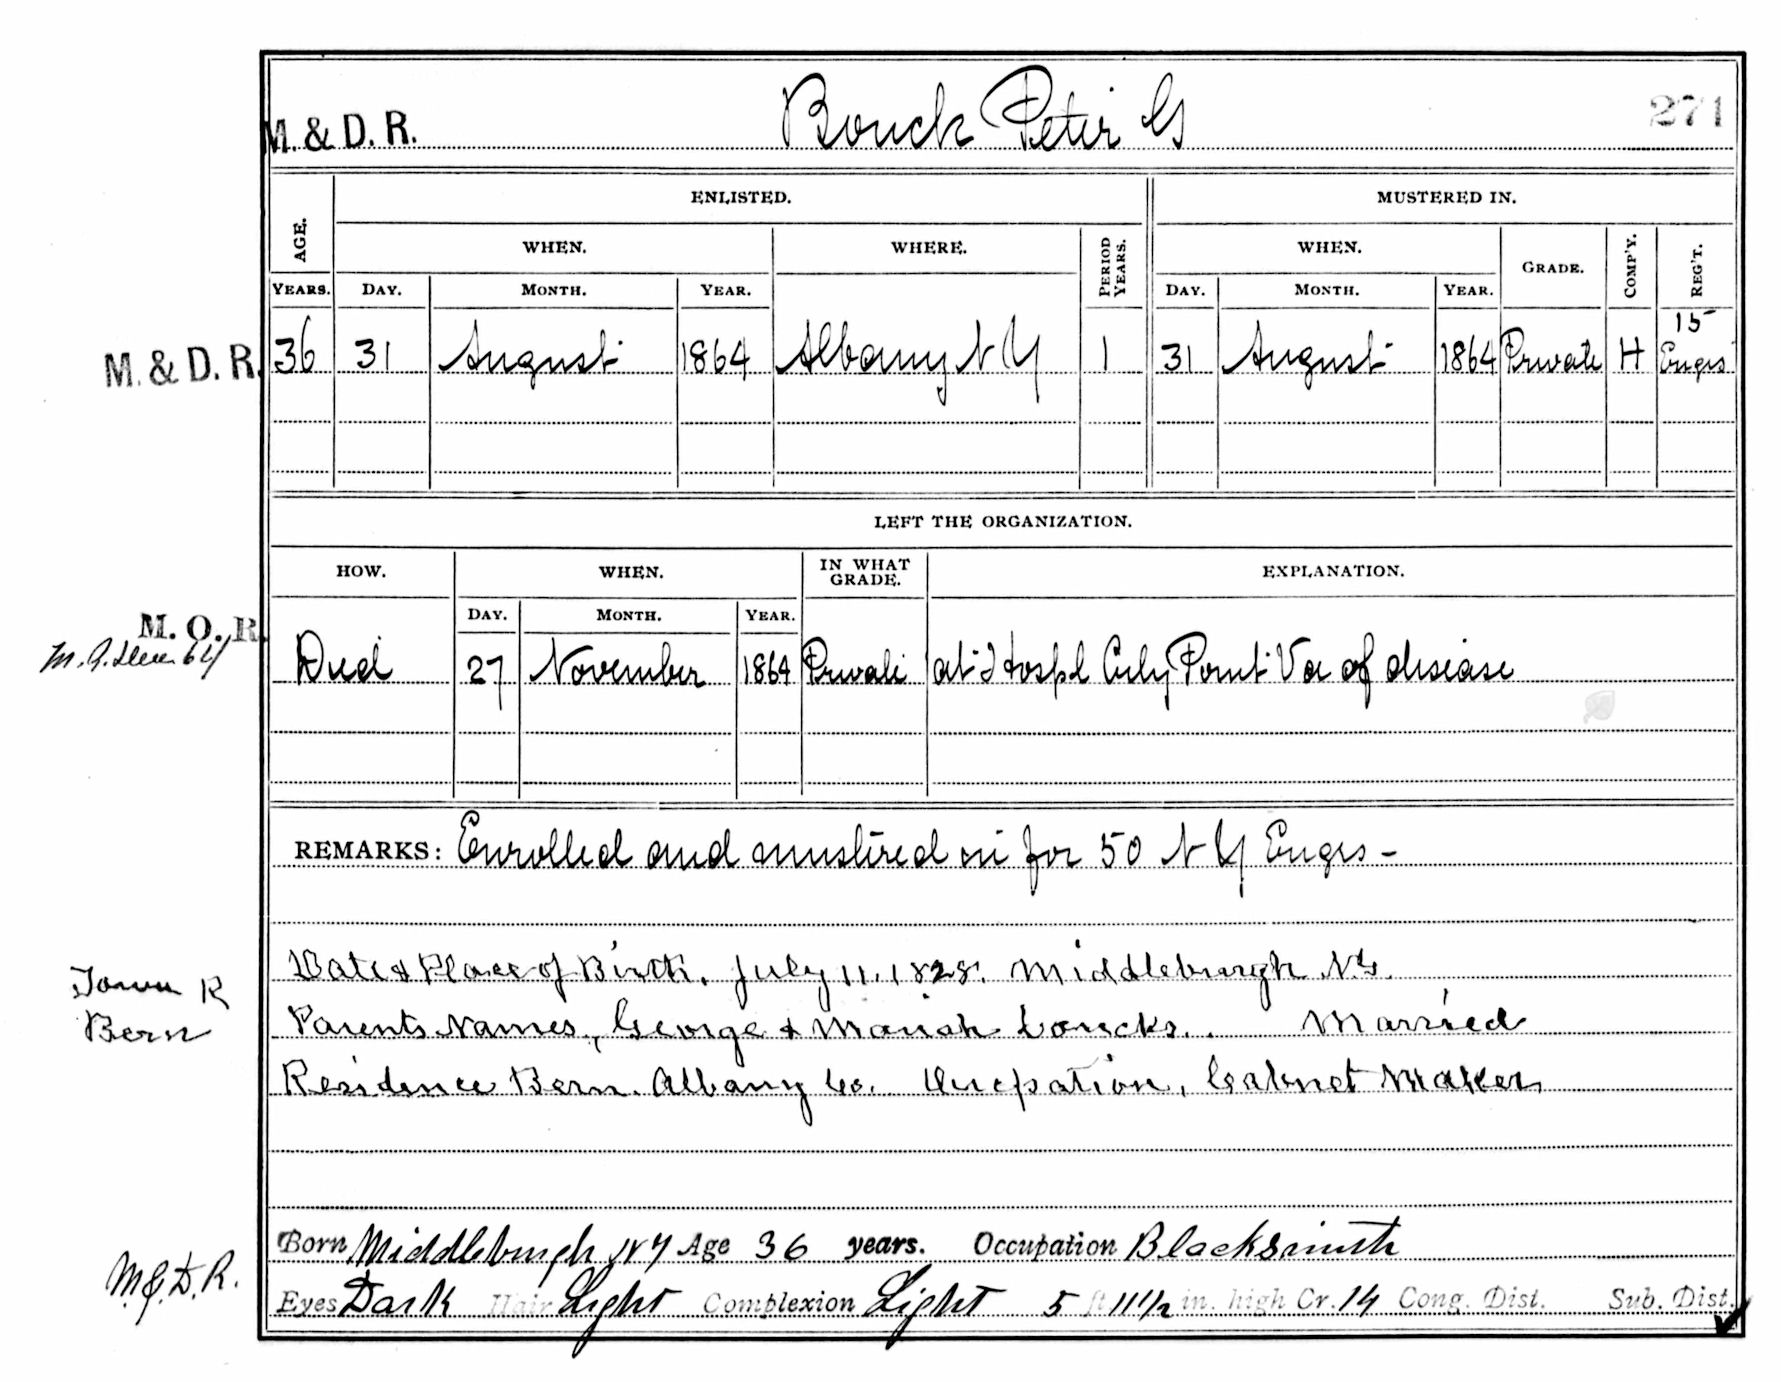 M. & D. R. Bouck Peter G 271
ENLISTED. MUSTERED IN.
AGE. WHEN. WHERE. PERIOD YEARS. WHEN. GRADE. COMP'Y. REG'T.
YEARS. DAY. MONTH. YEAR. DAY. MONTH. YEAR.
15
M. & D. R. 36 31 August 1864 Albany N Y 1 31 August 1864 Private H Engrs
LEFT THE ORGANIZATION.
HOW. WHEN. IN WHAT GRADE. EXPLANATION.
DAY. MONTH. YEAR.
M. O. R.
Died 27 November 1864 Private at Hospl City Point Va of disease
REMARKS: Enrolled and mustered in for 50 N Y Engrs -
Date & Place of Birth. July 11. 1828. Middleburgh N.Y.
Town R
Parents Names, George & Mariah Loucks.. Married
Bern
Residence Bern. Albany Co. Occupation, Cabinet Maker,
Born Middleburgh N Y Age 36 years. Occupation Blacksmith
M. & D. R.
Eyes Dark Hair Light Complexion Light 5 ft 11 1/2 in. high Cr. 14 Cong. Dist. Sub. Dist.